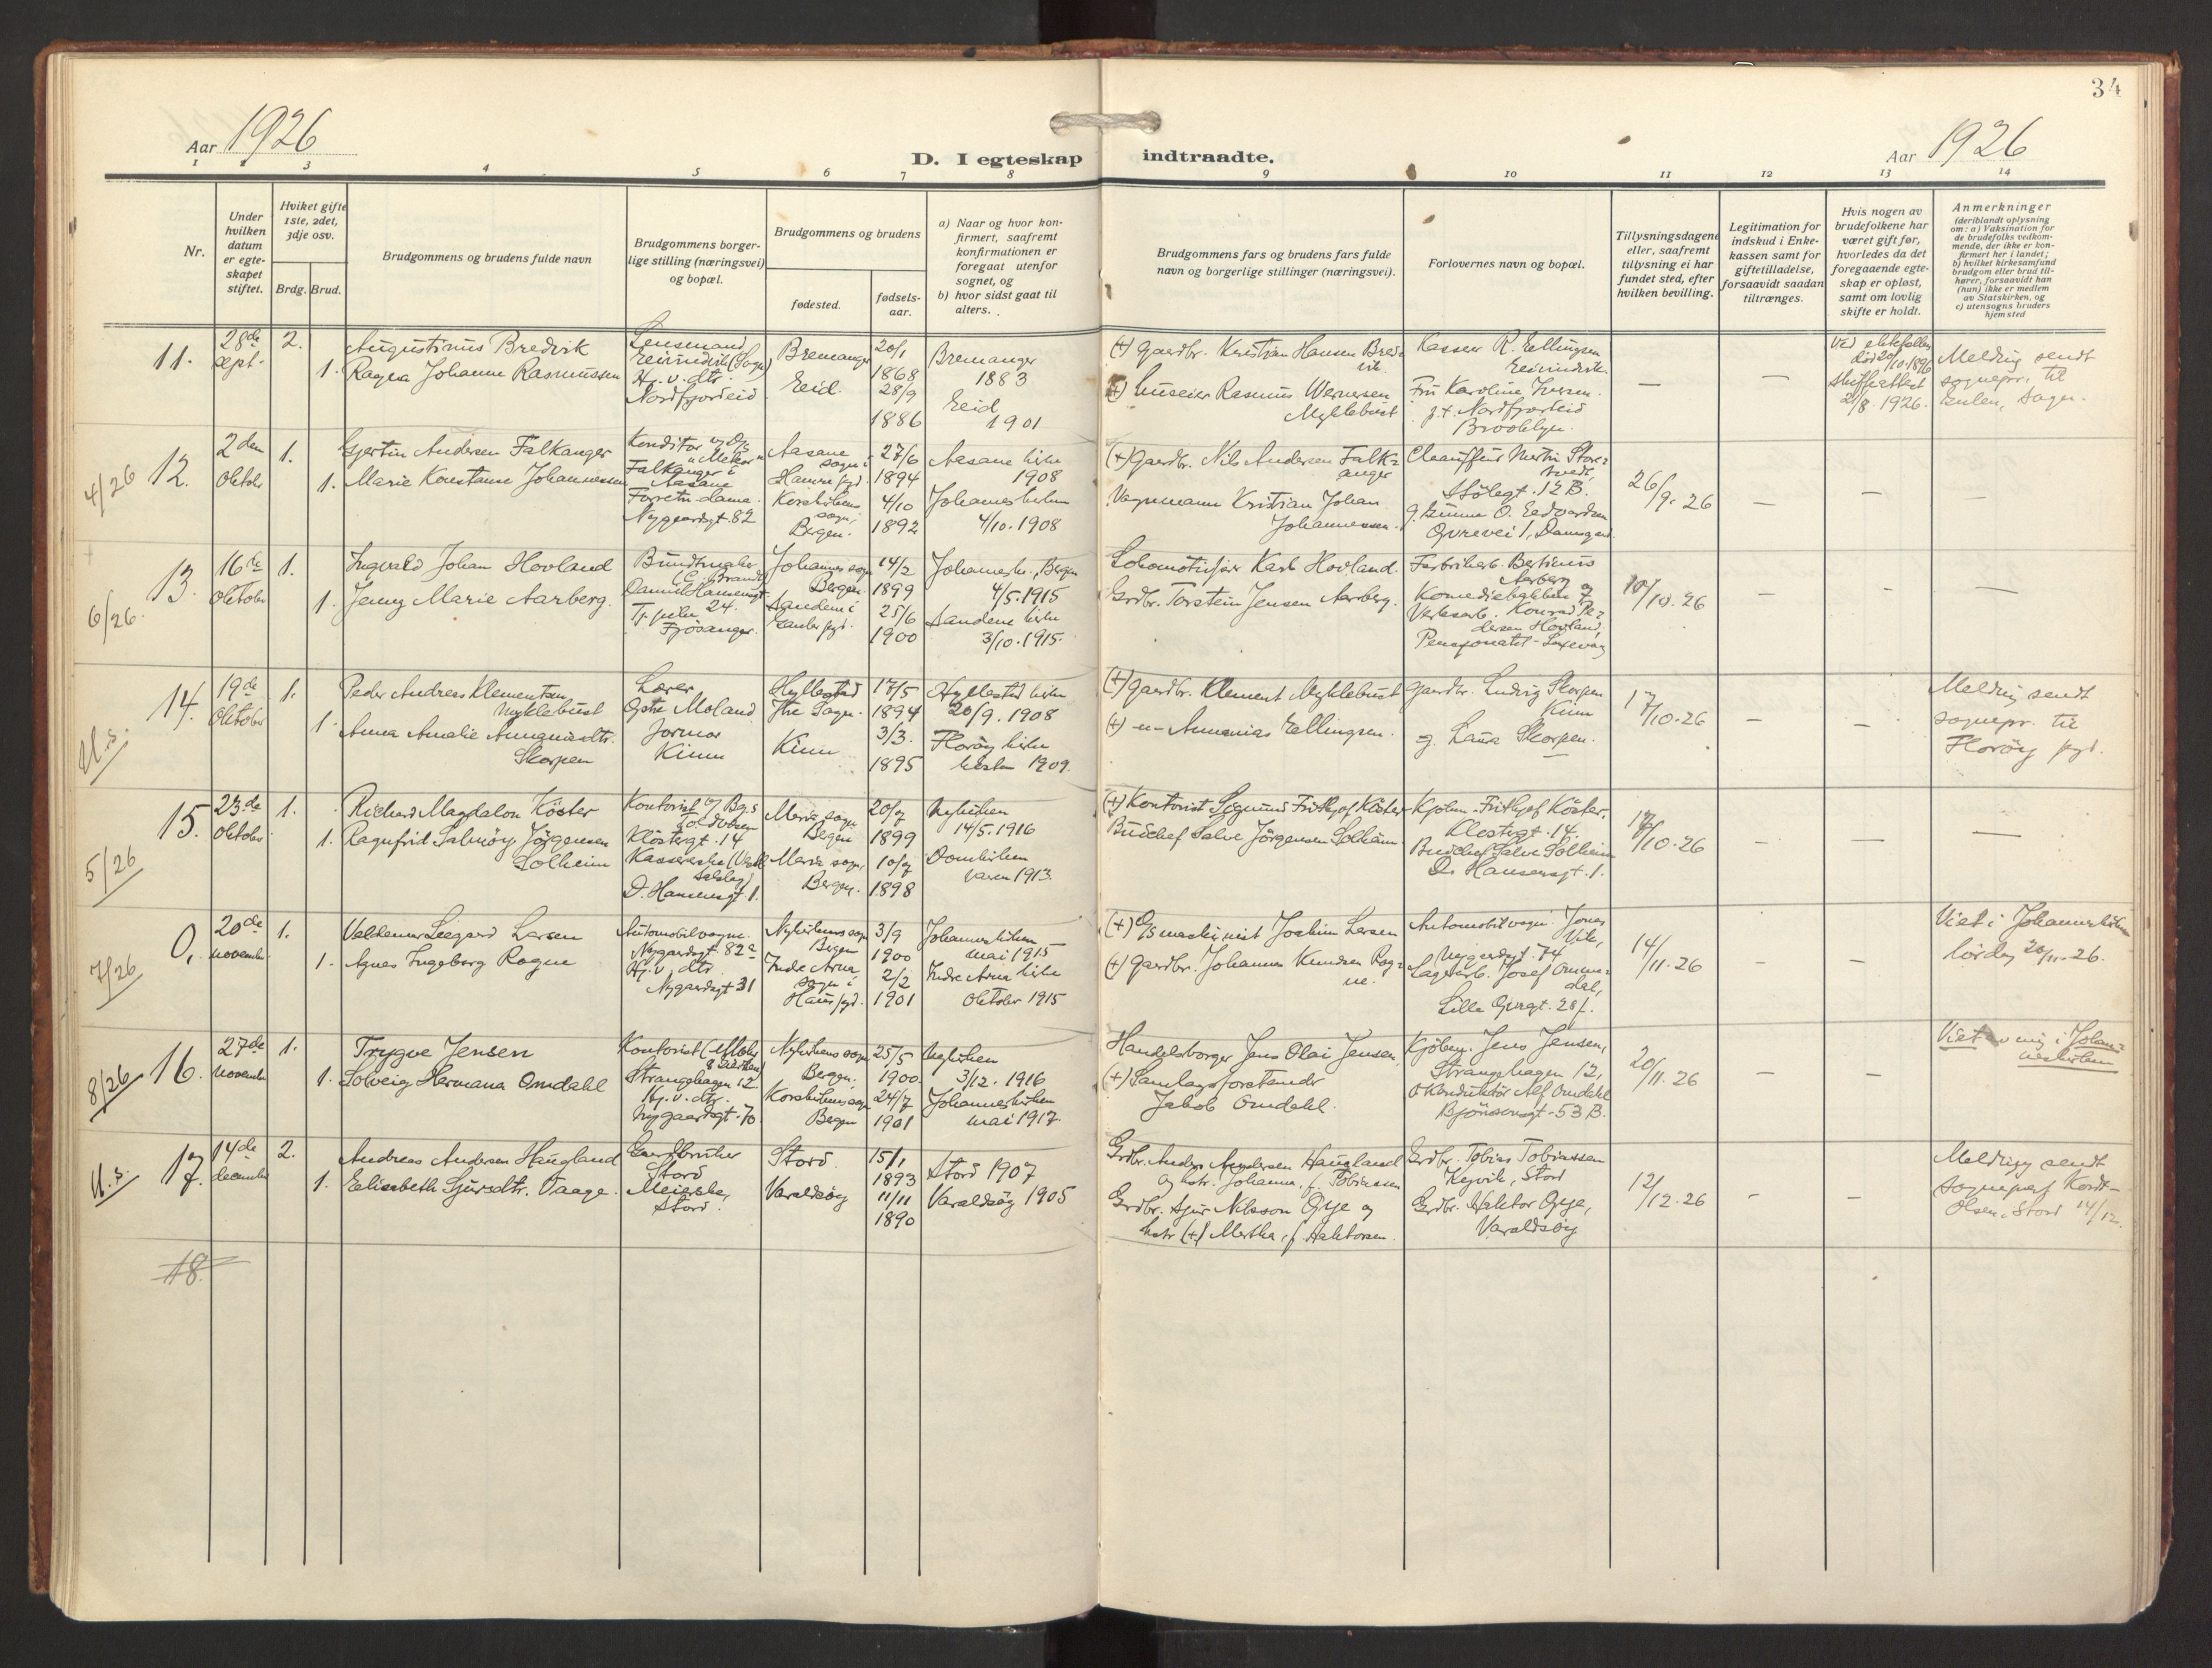 34
Aar 1926
Aar 1926
D. I egteskap indtraadte.
1 2 3 4 5 6 7 8 9 10 11 12 13 14
Nr.
Under hvilken datum er egte-skapet stiftet.
Hviket gifte 1ste, 2det, 3dje osv.
Brdg. Brud.
Brudgommens og brudens fulde navn
Brudgommens borger-
lige stilling (næringsvei)
og bopæl.
Brudgommens og brudens
fødested.
fødsels-
aar.
a) Naar og hvor kon-
firmert, saafremt
konfirmationen er
foregaat utenfor
sognet, og
b) hvor sidst gaat til
alters.
Brudgommens fars og brudens fars fulde
navn og borgerlige stillinger (næringsvei).
Forlovernes navn og bopæl.
Tillysningsdagene
eller, saafremt
tillysning ei har
fundet sted, efter
hvilken bevilling.
Legitimation for
indskud i Enke-
kassen samt for
giftetilladelse,
forsaavidt saadan
tiltrænges.
Hvis nogen av
brudefolkene har
været gift før,
hvorledes da det
foregaaende egte-
skap er opløst,
samt om lovlig
skifte er holdt.
Anmerkninger
(deriblandt oplysning
om: a) Vaksination for
de brudefolks vedkom-
mende, der ikke er kon-
firmert her i landet;
b) hvilket kirkesamfund
brudgom eller brud til-
hører, forsaavidt han
(hun) ikke er medlem
av Statskirken, og
c) utensogns bruders
hjemsted
11.
28de
sept.
2.
1.
Augustinus Bredvik
Ragna Johanne Rasmussen
Lensmand
Eivindvik (Sogn)
Hj. v. dtr.
Nordfjordeid
Bremanger
Eid.
20/1
1868
28/9
1886
Bremanger
1883
Eid
1901
(+) Gaardbr. Kristian Hansen Bred-
vik
(+) Huseier Rasmus Wernersen
Myklebust
Kasserer R. Ellingsen
Eivindvik
Fru Karoline Iversen
z.t. Nordfjordeid
Brooklyn.
—
—
Ved ektefælles
død 20/10 1896
Skifteattest
21/8. 1926.
Melding sendt
sognepr. til
Gulen, Sogn.
4/26
12.
2den
Oktober
1.
1.
Gjertin Andersen Falkanger
Marie Konstanse Johannessen
Konditor
Falkanger i
Aasane
Forretn. dame.
Nygaardsgt. 82
Aasane
sogn i
Hamre pgd.
Korskirkens
sogn,
Bergen.
27/6
1894
4/10
1892
Aasane kirke
1908
Johanneskirken
4/10. 1908
(+) Gaardbr. Nils Andersen Falk-
anger
Vognmann Kristian Johan
Johannessen.
Chauffeur Martin Store-
tvedt,
12 B.
O. Edvardsen
Øvrevei 1, Damsgaard.
26/9. 26
—
—
—
6/26.
13.
16de
Oktober
1.
1.
Ingvald Johan Hovland
Jenny Marie Aarberg.
Buntmaker
Brandt
Danniel Hansensgt.
24.
Fjøsanger.
Johannes sogn
Bergen
Sandene i
Gloppen pgd.
14/2
1899
25/6
1900
Johannesk., Bergen
4/5. 1915
Sandene kirke
3/10. 1915.
Lokomotivfører Karl Hovland.
Grdbr. Torstein Jensen Aarberg.
Fabrikarb. Bertinius
Aarberg
Komediebakken 7
Verksarb. Konrad Pe-
dersen Hovland,
Pensjonatet - Laksevaag
10/10. 26
—
-
—
U.s.
14.
19de
Oktober
1.
1.
Peder Andreas Klementsen
Myklebust
Anna Amalie Annaniasdtr.
Skorpen
Lærer
Østre Moland
Jormor
Kinn
Hyllestad
Ytre Sogn.
Kinn
17/5
1894
3/3.
1895
Hyllestad kirke
20/9. 1908
Florøy kirke
høsten 1909.
(+) Gaardbr. Klement Myklebust
(+) -"- Annanias Ellingsen.
Gaardbr. Ludvig Skorpen
Kinn
g. Laura Skorpen.
17/10. 26
—
—
Melding sendt
sognepr. til
Florøy pgd.
5/26
15.
23.de
Oktober
1.
1.
Richard Magdalon Köster
Ragnfrid Salmøy Jörgensen
Solheim
Kontorist v/ Bgs
Toldbosen
Klöstergt. 14
Kassererske
D. Hansensgt. 1.
Maria sogn
Bergen
Maria sogn,
Bergen.
20/7
1899
10/7
1898
Nykirken
14/5. 1916
Domkirken
vaaren 1913.
(+) Kontorist Sigmund Fridthjof Köster
Budchef Salve Jörgensen Solheim
Kjöbm. Fridthjof Köster,
Klostergt. 14.
Budchef Salve Solheim
D. Hansensgt. 1.
17/10. 26
—
—
—
7/26
0.
20de
November
1.
1.
Valdemar Leegard Larsen
Agnes Ingeborg Rogne
Automobilvogn.
Nygaardsgt. 82a
Hj. v. dtr.
Nygaardsgt 31
Nykirkens sogn
Bergen
Indre Arna
sogn i
Haus pgd.
3/9
1900
2/2
1901
Johanneskirken
mai 1915
Indre Arna kirke
Oktober 1915
(+) Ismaskinist Joakim Larsen
(+) Gaardbr. Johannes Knudsen Rog-
ne.
Automobilvogn. Jonas
Vik,
Nygaardsgt. 74
Lagerarb. Josef Omme-
dal,
Lille Øvregt. 28f.
14/11. 26
—
—
Viet i Johanneskirken
lördag 20/11. 26.
8/26
16.
27de
November
1.
1.
Trygve Jensen
Solveig Hermana Omdahl
Kontorist
Strangehagen 12
Hj. v. dtr.
Nygaardsgt. 70
Nykirkens sogn
Bergen.
Korskirkens sogn
Bergen
25/5
1900.
24/7
1901
Nykirken
3/12. 1916
Johanneskirken
mai 1917.
Handelsborger Jens Olai Jensen
(+) Samlagsforstander
Jakob Omdahl.
Kjöbm. Jens Jensen,
Strangehagen 12,
Konduktör Alf Omdahl
Björnsensgt. 53 B.
20/11. 26
—
—
Viet av mig i Johan-
neskirken
U.s.
17.
14de
December
2.
1.
Andreas Andersen Haugland
Elisabeth Sjursdtr. Vaage.
Gaardbruker
Stord
Meierske,
Stord.
Stord.
Varaldsöy
15/1
1893
11/11
1890
Stord 1907
Varaldsöy 1905
Grdbr. Anders Andersen Haugland
og hstr. Johanna, f. Tobiassen
Grdbr. Sjur Nilsson Öye og
hstr (+) Martha, f. Haktorsen.
Grdbr. Tobias Tobiassen
Høyvik, Stord
Grdbr. Haktor Öye,
Varaldsöy
12/12. 26
-
—
Melding sendt
sogneprest Kordt-
Olsen, Stord 14/12.
18.